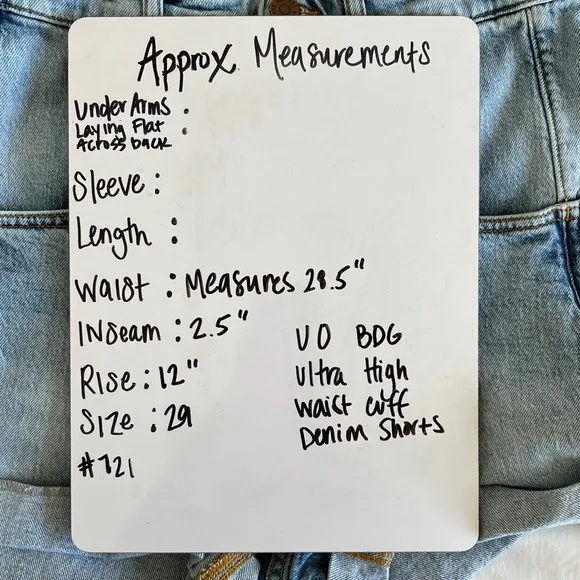 Approx Measurements
Under Arms :
Laying Flat
Across back
Sleeve :
Length :
Waist : Measures 28.5"
INSeam : 2.5"
Rise : 12"
Size : 29
#721
UO BDG
Ultra High
Waist cuff
Denim Shorts